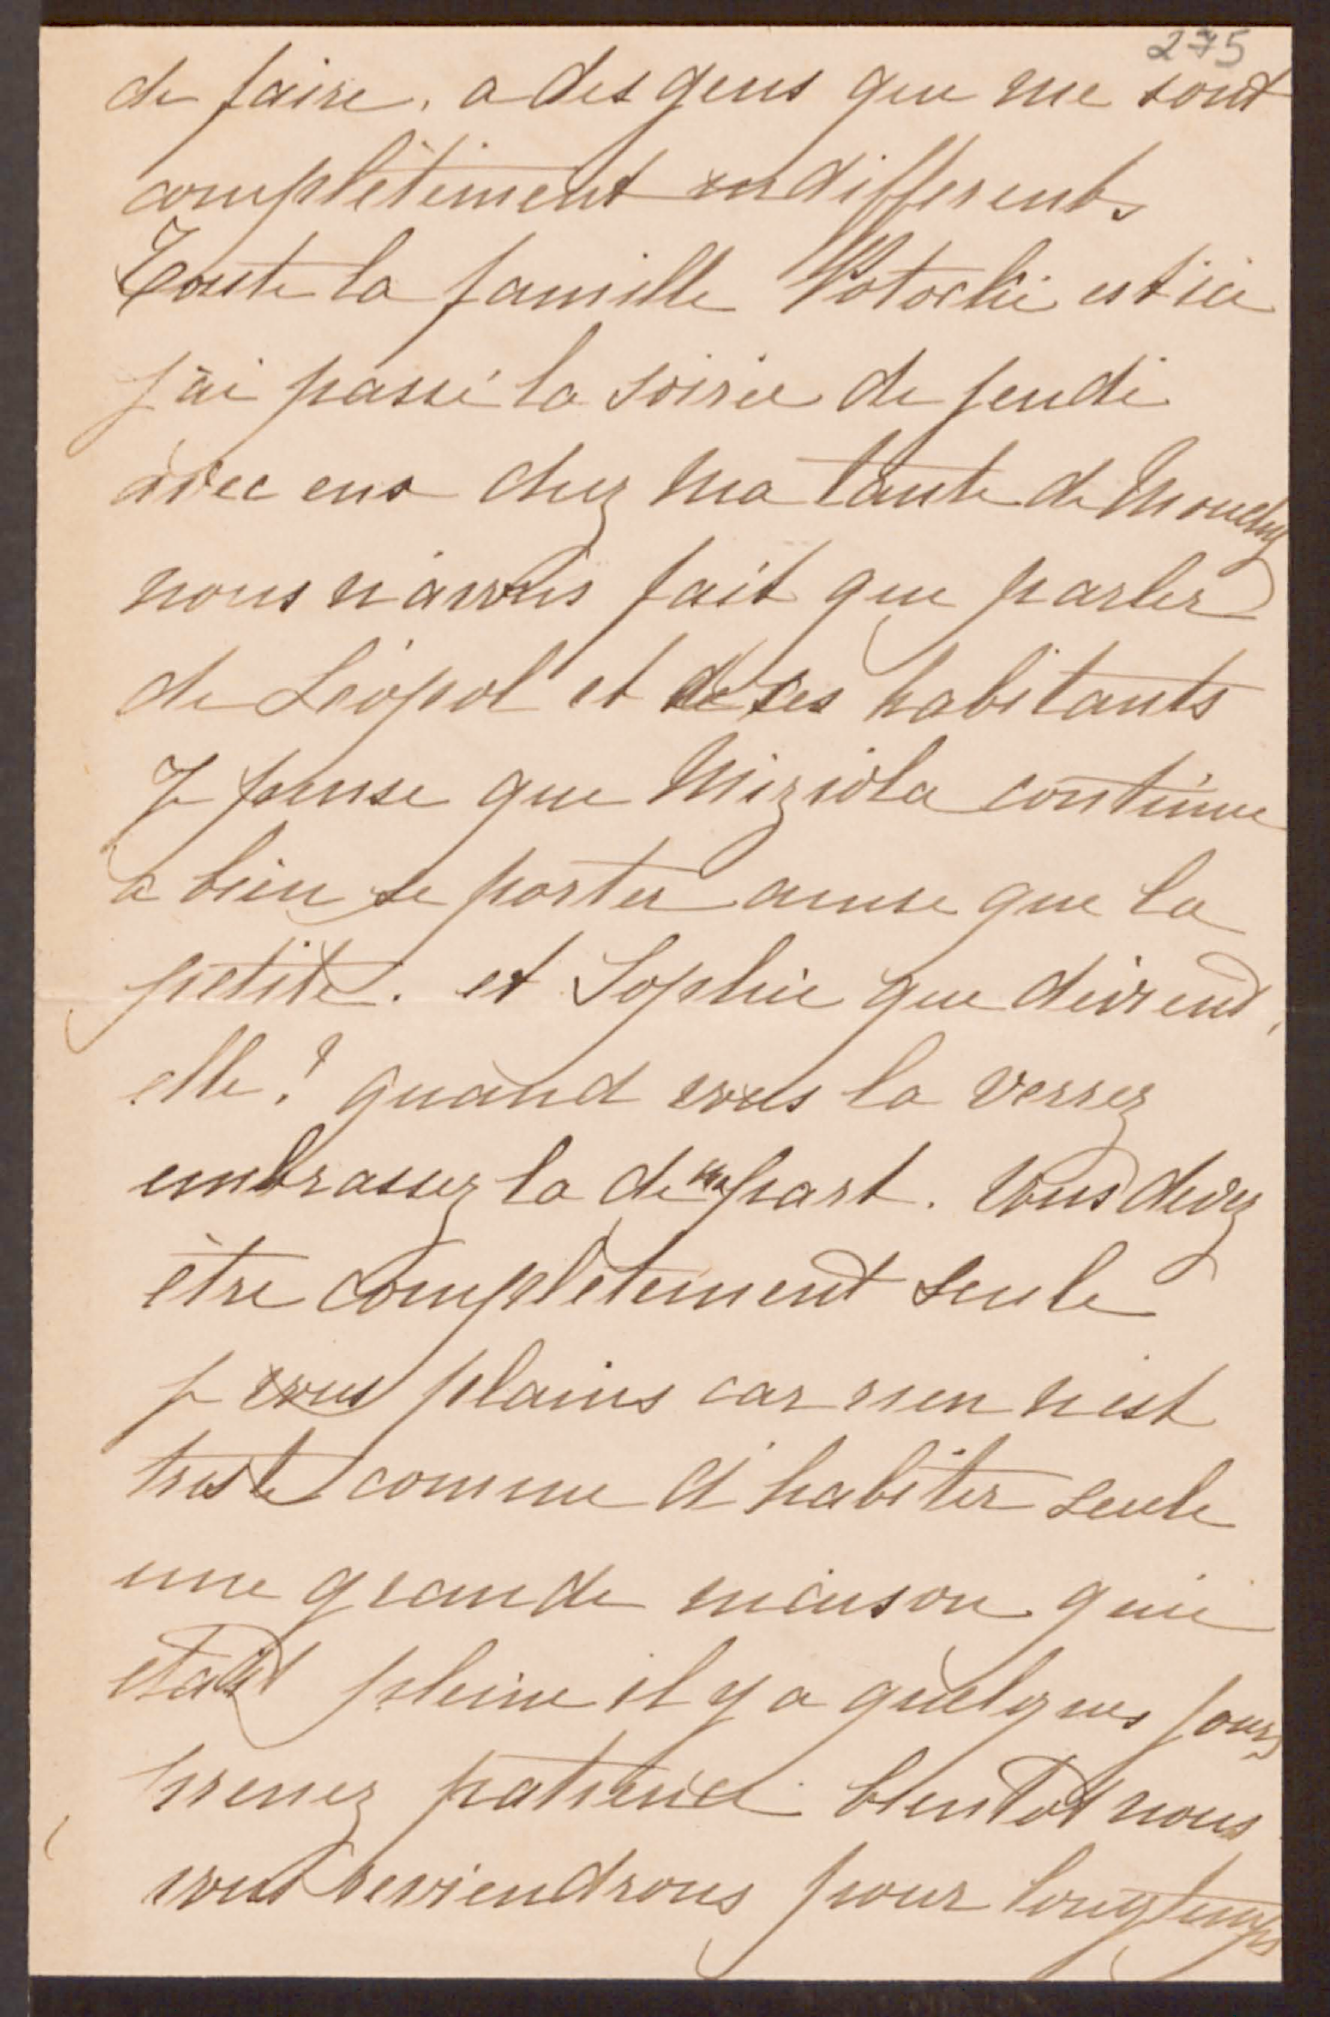 275
de faire. a des gens que me sont
complètement indifferents
Toute la famille Potocki est ici
j'ai passé la soirée de jeudi
avec eux chez ma tante de Mouchy
nous n'avons fait que parler
de Léopol et de ses habitants
Je pense que Miziola continue
a bien se porter ainsi que la
petite. et Sophie que devient
elle? quand vous la verrez
embrassez la de ma part. Vous devez
être complètement seule
je vous plains car rien n'est
triste comme d'habiter seule
une grande maison qui
etait pleine il y a quelques jours
prenez patience bientot nous
vous reviendrons pour longtemps